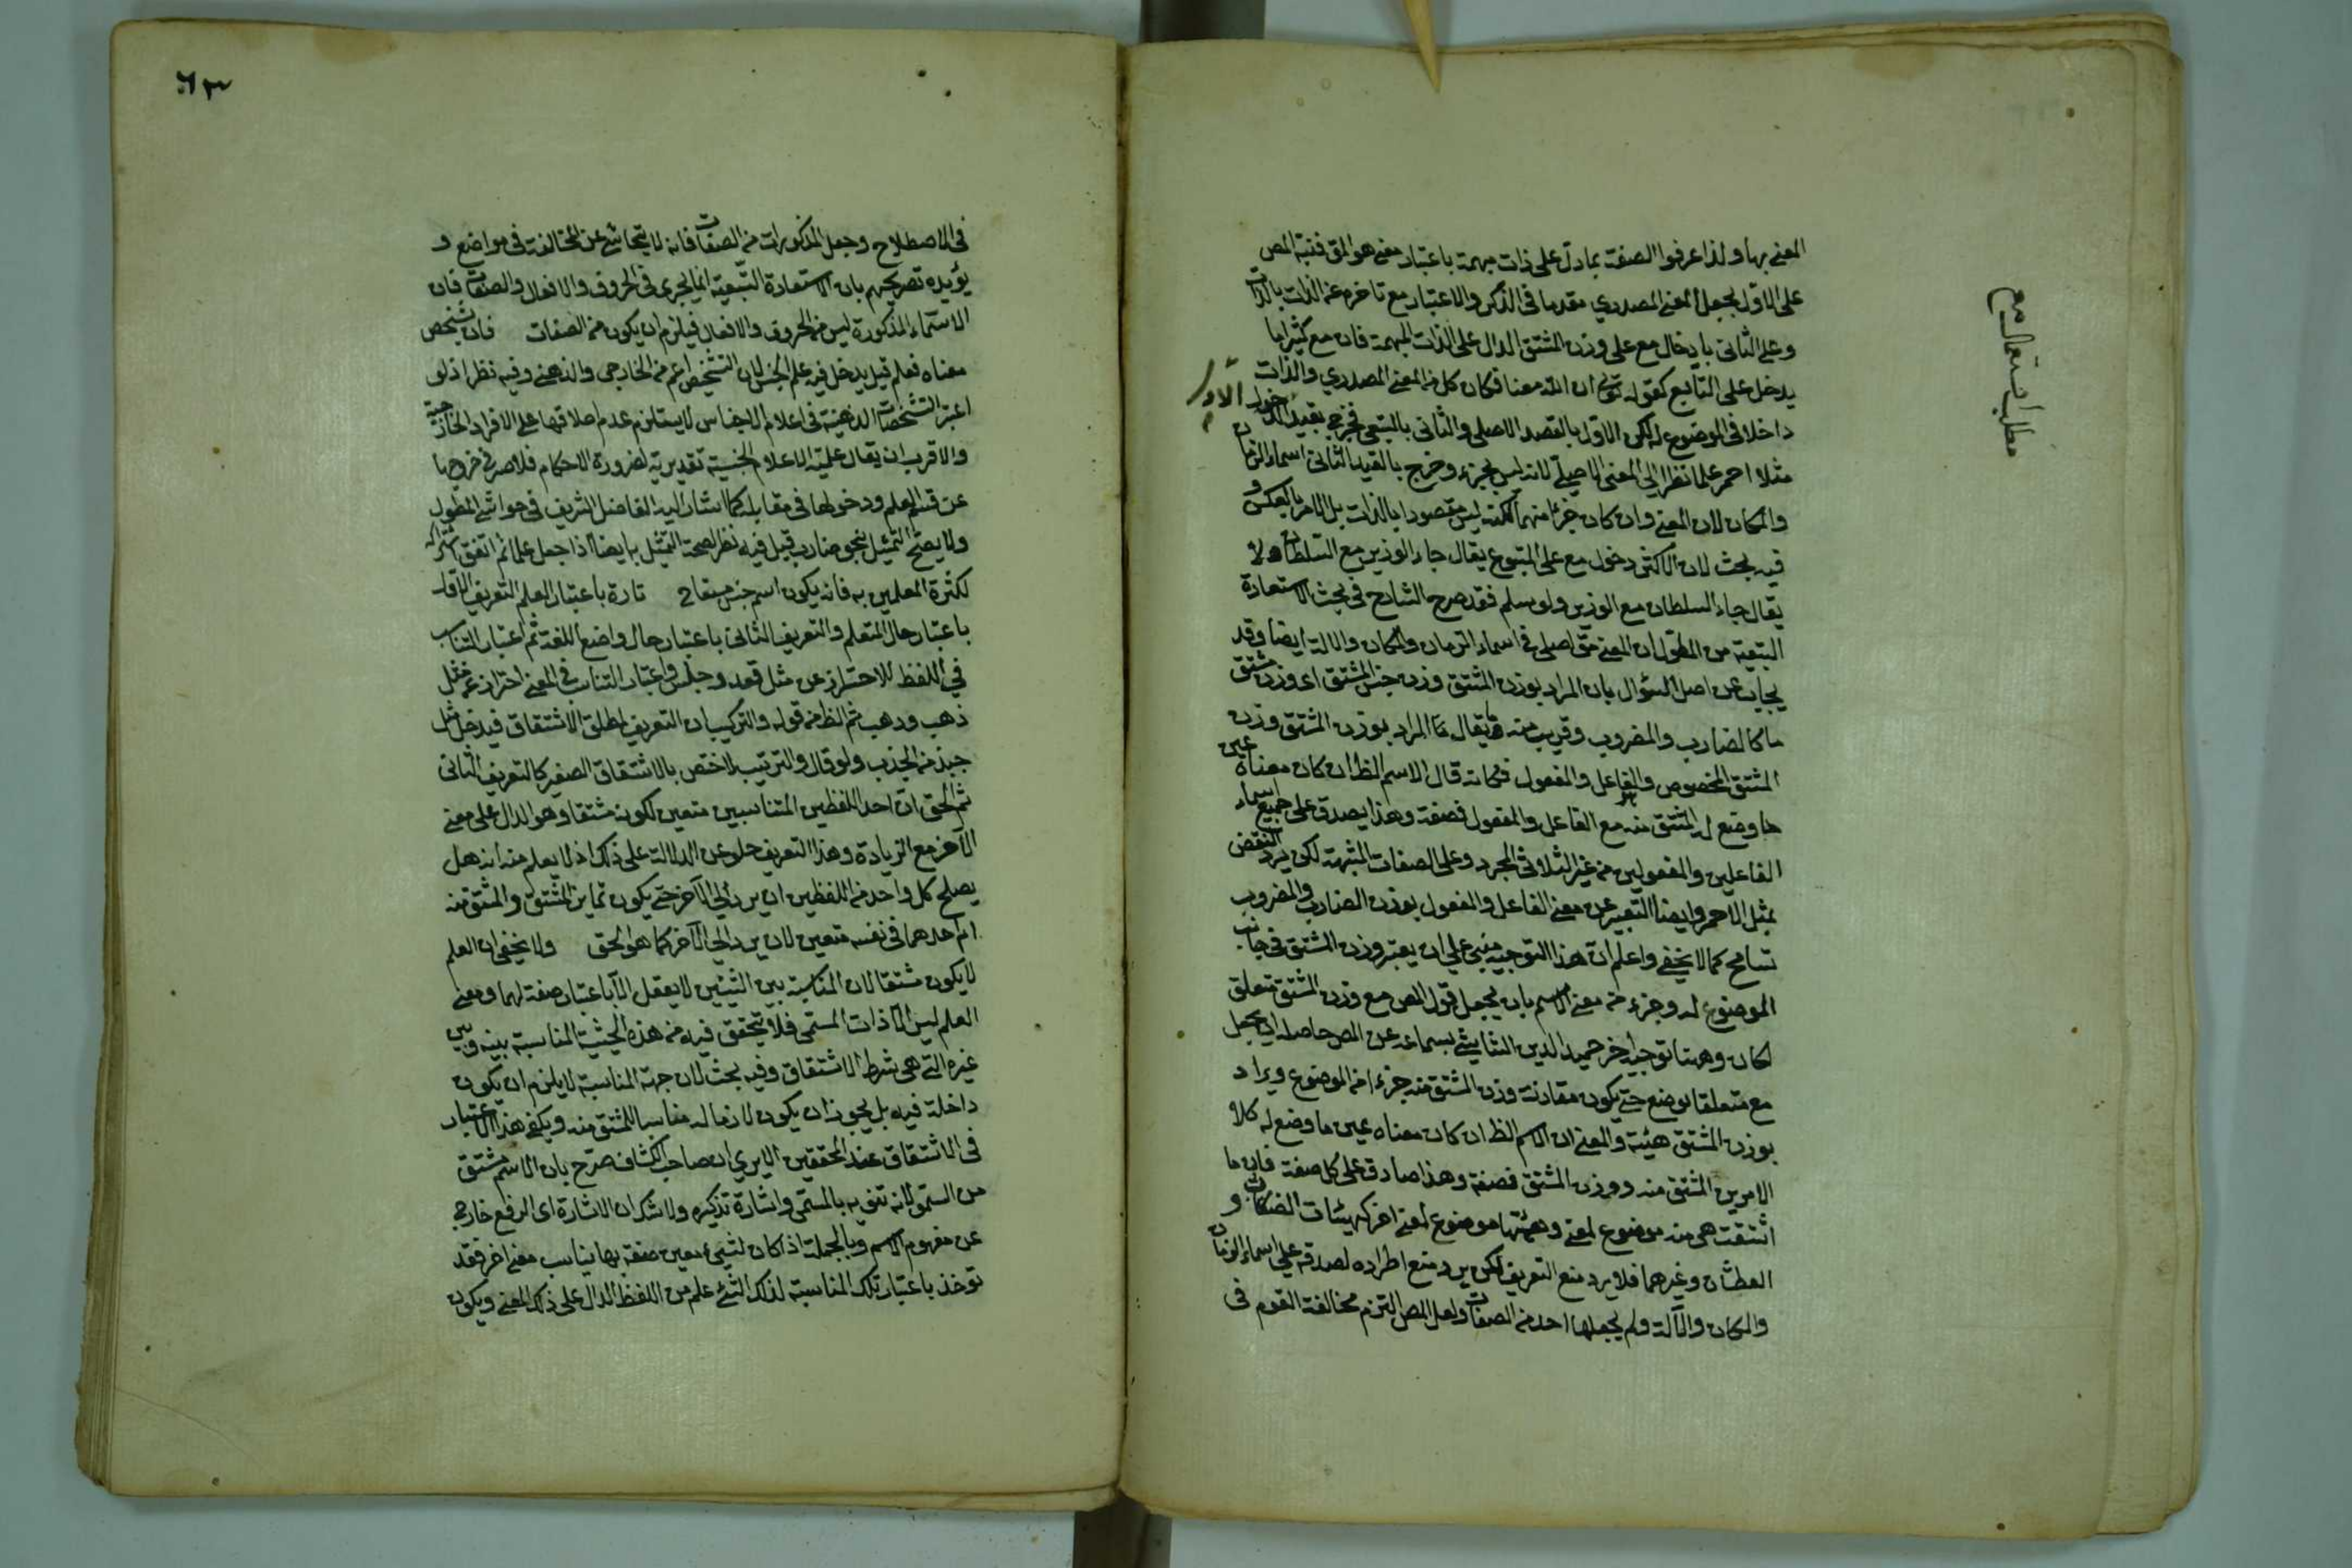 المعنى بها ولذا عرفوا الصفة بما دل على ذات مبهمة باعتبار معنى هو المق فنبه المص
على الاول بجعل المعنى المصدري مقدما في الذكر والاعتبار مع تاخره عن الذات بالذات
وعلى الثاني بادخال مع على وزن المشتق الدال على الذات المبهمة فان مع كثيرا ما
يدخل على التابع كقوله تع ان الله معنا فكان كل من المعنى المصدري والذات
داخلا في الموضوع له لكن الاول بالقصد الاصلي والثاني بالتبعي فخرج بقيد الدخول
الاول
مثلا احمر علما نظرا الى المعنى الاصلي لانه ليس بجزء وخرج بالقيد الثاني اسماء الزمان
والمكان لان المعنى وان كان جزءا منها لكنه ليس مقصودا بالذات بل الامر بالعكس و
فيه بحث لان الاكثر دخول مع على المتبوع يقال جاء الوزير مع السلطان ولا
يقال جاء السلطان مع الوزير ولو سلم فقد صرح الشارح في بحث الاستعارة
التبعية من المطول ان المعنى مق اصلي في اسماء الزمان والمكان والالة ايضا وقد
يجاب عن اصل السؤال بان المراد بوزن المشتق وزن جنس المشتق اى وزن مشتق
ما كالضارب والمضروب وقريب منه ما يقال ان المراد بوزن المشتق وزن
المشتق المخصوص والفاعل والمفعول فكانه قال الاسم الظ ان كان معناه عين
ما وضع له المشتق منه مع الفاعل والمفعول فصفة وهذا يصدق على جميع اسماء
الفاعلين والمفعولين من غير الثلاثي المجرد وعلى الصفات المشبهة لكن يرد النقض
بمثل الاحمر وايضا التعبير عن معنى الفاعل والمفعول بوزن الضارب والمضروب
تسامح كما لا يخفى واعلم ان هذا التوجيه مبني على ان يعتبر وزن المشتق في جانب
الموضوع له وجزء من معنى الاسم بان يجعل قول المص مع وزن المشتق متعلق
لكان وههنا توجيه اخر حميد الدين الشاشي بسماعه عن المص حاصله ان يجعل
مع متعلقا بوضع حتى يكون مقارنة وزن المشتق منه جزءا من الموضوع ويراد
بوزن المشتق هيئة والمعنى ان الاسم الظ ان كان معناه عين ما وضع له كلا
الامرين المشتق منه ووزن المشتق فصفة وهذا صادق على كل صفة فان ما
اشتقت هي منه موضوع لمعنى وهيئتها موضوع لمعنى اخر كهيئات الضحكان و
العطشان وغيرهما فلا يرد منع التعريف لكن يرد منع اطراده لصدقه على اسماء الزمان
والمكان والآلة ولم يجعلها احد من الصفات ولعل المص التزم مخالفة القوم في
مطلب استعمال مع
٦٣
في الاصطلاح وجعل المذكورات من الصفات فانه لا يتحاشى عن المخالفة في مواضع و
يؤيده تصريحهم بان الاستعارة التبعية انما يجرى في الحروف والافعال والصفات فان
الاسماء المذكورة ليس من الحروف والافعال فيلزم ان يكون من الصفات فان تشخص
معناه فعلم قيل يدخل فيه علم الجنس لان التشخص اعم من الخارجي والذهني وفيه نظر اذ لو
اعتبر التشخصات الذهنية في اعلام الاجناس لا يستلزم عدم اطلاقها على الافراد الخارجية
والاقرب ان يقال علمية الاعلام الجنسية تقديرية لضرورة الاحكام فلا ضرر في خروجها
عن قسم العلم ودخولها في مقابله كما اشار اليه الفاضل الشريف في حواشي المطول
ولا يصح التمثيل بنحو ضارب قيل فيه نظر لصحة التمثيل به ايضا اذا جعل علما ثم اتفق اشتراكه
لكثرة المعلمين به فانه يكون اسم جنس مشتقا تارة باعتبار العلم التعريف الاول
باعتبار حال المتعلم والتعريف الثاني باعتبار حال واضع اللغة ثم اعتبار التناسب
في اللفظ للاحتراز عن مثل قعد وجلس واعتبار التناسب في المعنى احتراز عن مثل
ذهب ودهب ثم الظ من قوله والتركيب ان التعريف لمطلق الاشتقاق فيدخل مثل
جبذ من الجذب ولو قال والترتيب لاختص بالاشتقاق الصغير كالتعريف الثاني
ثم الحق ان احد اللفظين المتناسبين متعين لكونه مشتقا وهو الدال على معنى
الآخر مع الزيادة وهذا التعريف خلو عن الدلالة على ذلك اذ لا يعلم منه انه هل
يصلح كل واحد من اللفظين ان يرد الى الآخر حتى يكون تمايز المشتق والمشتق منه
ام احدهما في نفسه متعين لان يرد الى الآخر كما هو الحق ولا يخفى ان العلم
لا يكون مشتقا لان المناسبة بين الشيئين لا يعقل الا باعتبار صفة لهما ومعنى
العلم ليس الا ذات المسمى فلا يتحقق فيه من هذه الحيثية المناسبة بينه وبين
غيره التي هي شرط الاشتقاق وفيه بحث لان جهة المناسبة لا يلزم ان يكون
داخلة فيه بل يجوز ان يكون لازما له مناسبا للمشتق منه ويكفى هذا الاعتبار
في الاشتقاق عند المحققين الا يرى ان صاحب الكشاف صرح بان الاسم مشتق
من السمو لانه تنويه بالمسمى واشارة بذكره ولا شك ان الاشارة اى الرفع خارج
عن مفهوم الاسم وبالجملة اذا كان لشيء معين صفة بها يناسب معنى اخر فقد
توخذ باعتبار تلك المناسبة لذلك الشئ علم من اللفظ الدال على ذلك المعنى ويكون